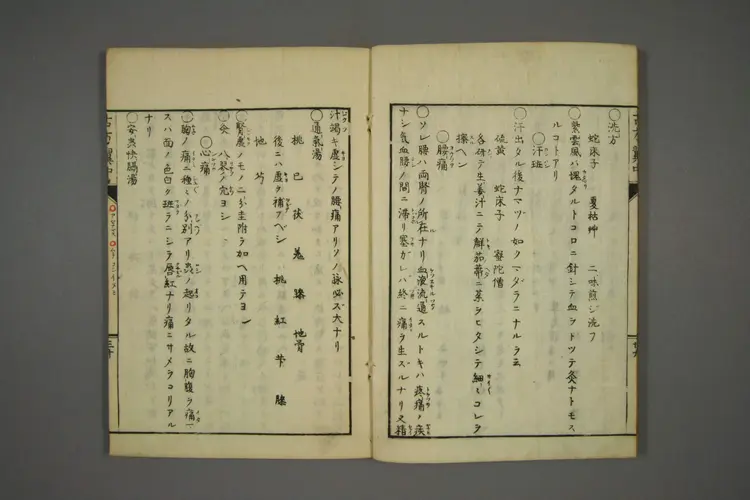 ○洗方
蛇床子　夏枯艸　二味煎ジ洗フ
○紫雲風ハ塊タルトコロニ針シテ血ヲトツテ灸ナトモス
ルコトアリ
○汗班
○汗出タル後ナマツノ如クマダラニナルヲ云
硫黄　蛇床子　密陀僧
各研テ生姜汁ニテ解茄蔕ニ薬ヲヒタシテ細々コレヲ
擦ヘシ
○腰痛
○ソレ腰ハ両腎ノ所在ナリ血液流通スルトキハ疼痛ノ疾
ナシ気血腰ノ間ニ滞リ塞ガレハ終ニ痛ヲ生ズルナリ又精
汁竭キ虚シテノ腰痛アリソノ脉必ズ大ナリ
○通氣湯
桃　巳　茯　羌　膝　地骨
後ニハ虚ヲ補フベシ　桃　紅　芐　膝
地　芍
○腎虚ノモノニハ圭附ヲ加ヘ用テヨシ
○灸　八窌ノ穴ヨシ
○心痛
○胸ノ痛ニ種々ノ分別アリ虫ノ起リタル故ニ胸腹ヲ痛
スハ面ノ色白ク班ラニシテ唇紅ナリ痛ニサメヲコリアル
ナリ
○安虫快膈湯